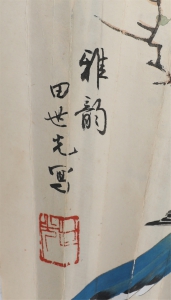 雅韵
田世光写